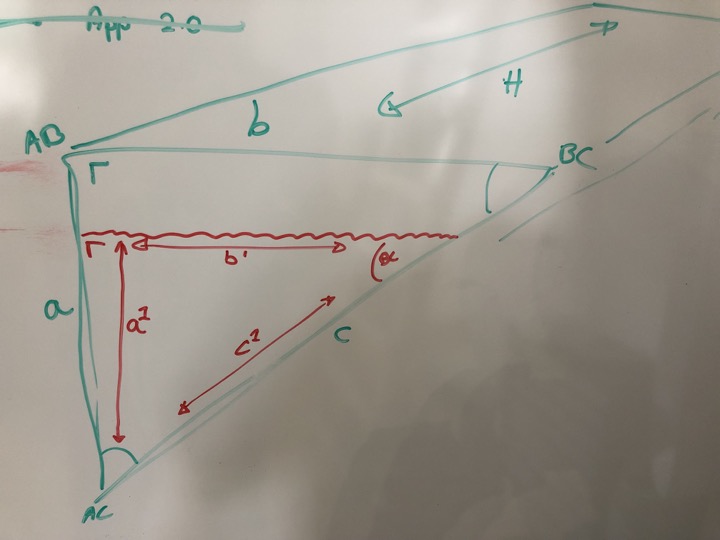 App 2.0
H
b
AB
BC
b'
α
a
a¹
c¹
c
AC